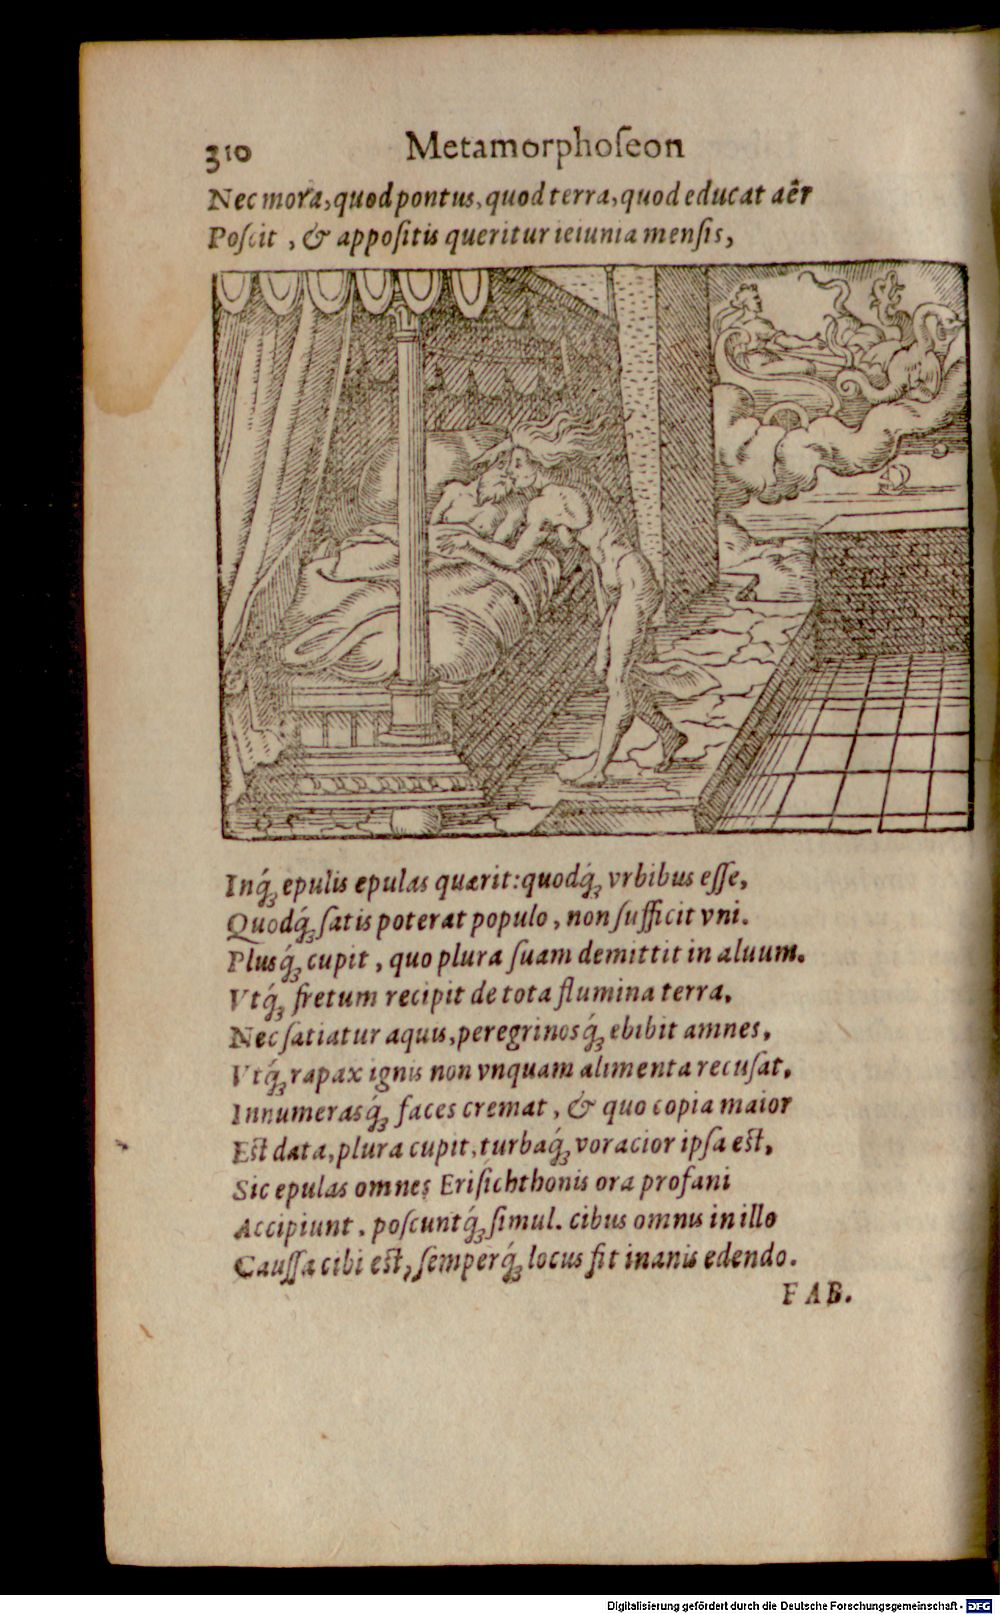 310 Metamorphoſeon
Nec mora, quod pontus, quod terra, quod educat aër
Poſcit, & appoſitis queritur ieiunia menſis,
Inq́ꝫ epulis epulas quærit: quodq́ꝫ vrbibus eſſe,
Quodq́ꝫ ſatis poterat populo, non ſufficit vni.
Plusq́ꝫ cupit, quo plura ſuam demittit in aluum.
Vtq́ꝫ fretum recipit de tota flumina terra,
Nec ſatiatur aquis, peregrinosq́ꝫ ebibit amnes,
Vtq́ꝫ rapax ignis non vnquam alimenta recuſat,
Innumerasq́ꝫ faces cremat, & quo copia maior
Eſt data, plura cupit, turbaq́ꝫ voracior ipſa eſt,
Sic epulas omnes Eriſichthonis ora profani
Accipiunt, poſcuntq́ꝫ ſimul. cibus omnis in illo
Cauſſa cibi eſt, ſemperq́ꝫ locus fit inanis edendo.
FAB.
Digitalisierung gefördert durch die Deutsche Forschungsgemeinschaft - DFG